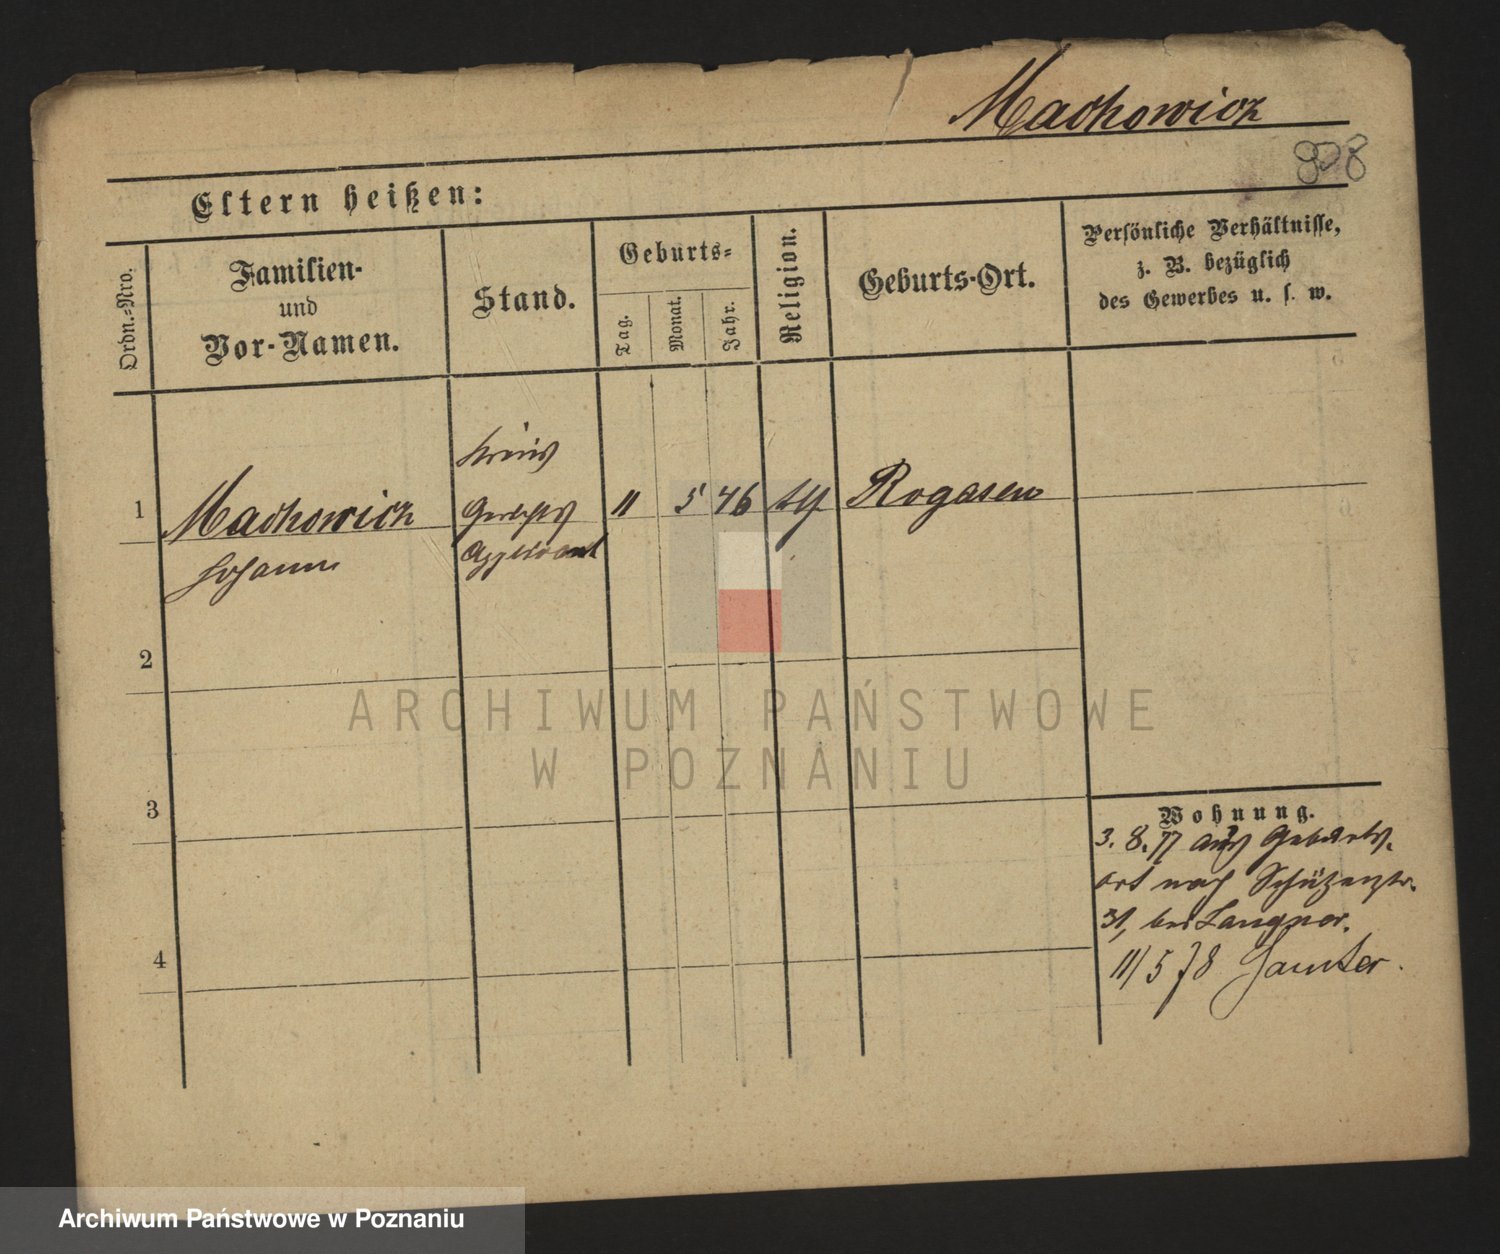 Machowicz
828
Eltern heißen:
Ordn.-Nro.
Familien-
und
Vor-Namen.
Stand.
Geburts-
Tag.
Monat.
Jahr.
Religion.
Geburts-Ort.
Persönliche Verhältnisse,
z. B. bezüglich
des Gewerbes u. s. w.
1
Machowicz
Johann
Kreis
Gerichts
Applicant
11
5
46
Rogasen
2
3
4
Wohnung.
3. 8. 77 aus Geburts-
ort nach Schützenstr.
31, bei Langner.
11/5 78 Samter.
ARCHIWUM PAŃSTWOWE
W POZNANIU
Archiwum Państwowe w Poznaniu